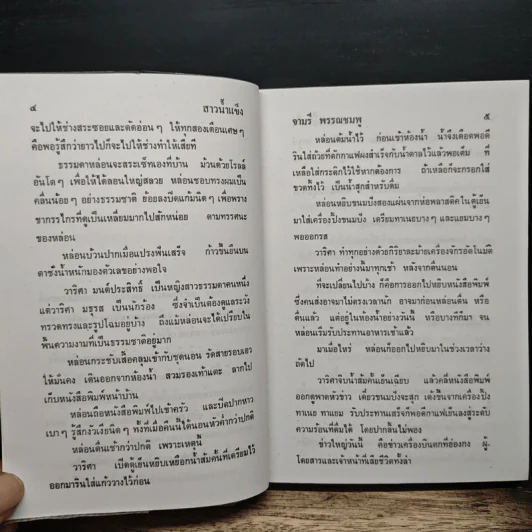 ๔ สาวน้ำแข็ง
จะไปให้ช่างสระซอยและดัดอ่อนๆ ให้ทุกสองเดือนเศษๆ
คือพอรู้สึกว่ายาวไปก็จะไปให้ช่างทำให้เสียที
ธรรมดาหล่อนจะสระเซ็ทเองที่บ้าน ม้วนด้วยโรลล์
อันโตๆ เพื่อให้ได้ลอนใหญ่สลวย หล่อนชอบทรงผมเป็น
คลื่นน้อยๆ อย่างธรรมชาติ ย้อยลงปิดแก้มนิดๆ เพื่อพราง
ขากรรไกรที่ดูเป็นเหลี่ยมมากไปสักหน่อย ตามทรรศนะ
ของหล่อน
หล่อนบ้วนปากเมื่อแปรงฟันเสร็จ ก้าวขึ้นยืนบน
ตาชั่งน้ำหนักมองตัวเลขอย่างพอใจ
วาริศา มนต์ประสิทธิ์ เป็นหญิงสาวธรรมดาคนหนึ่ง
แต่วาริศา มธุรส เป็นนักร้อง ซึ่งจำเป็นต้องดูแลระวัง
ทรวดทรงและรูปโฉมอยู่บ้าง ถึงแม้หล่อนจะได้เปรียบใน
พื้นความงามที่เป็นธรรมชาติอยู่มาก
หล่อนกระชับเสื้อคลุมเข้ากับชุดนอน รัดสายรอบเอว
ให้มั่นคง เดินออกจากห้องน้ำ สวมรองเท้าแตะ ลากไป
เก็บหนังสือพิมพ์หน้าบ้าน
หล่อนถือหนังสือพิมพ์ไปเข้าครัว และปิดปากหาว
เบาๆ รู้สึกง่วงเงียนิดๆ ทั้งที่เมื่อคืนนี้ได้นอนหัวค่ำกว่าปกติ
หล่อนตื่นเช้ากว่าปกติ เพราะเหตุนี้
วาริศา เปิดตู้เย็นหยิบเหยือกน้ำส้มคั้นที่เตรียมไว้
ออกมารินใส่แก้ววางไว้ก่อน
จามรี พรรณชมพู ๕
หล่อนต้มน้ำไว้ ก่อนเข้าห้องน้ำ น้ำจึงเดือดพอดี
รินใส่ถ้วยที่ตักกาแฟผงสำเร็จกับน้ำตาลไว้แล้วพอเต็ม ที่
เหลือใส่กระติกไว้ใช้หากต้องการ ถ้าเหลือก็จะกรอกใส่
ขวดทิ้งไว้ เป็นน้ำสุกสำหรับดื่ม
หล่อนหยิบขนมปังสองแผ่นจากห่อพลาสติคในตู้เย็น
มาใส่เครื่องปิ้งขนมปัง เตรียมทาเนยบางๆ และแยมบางๆ
พอออกรส
วาริศา ทำทุกอย่างด้วยกิริยาละม้ายเครื่องจักรอัตโนมัติ
เพราะหล่อนทำอย่างนี้มาทุกเช้า หลังจากตื่นนอน
ที่จะเปลี่ยนไปบ้าง ก็คือการออกไปหยิบหนังสือพิมพ์
ซึ่งคนส่งอาจมาไม่ตรงเวลานัก อาจมาก่อนหล่อนตื่น หรือ
ตื่นแล้ว แต่อยู่ในห้องน้ำอย่างวันนี้ หรือบางทีก็มา จน
หล่อนเริ่มรับประทานอาหารเช้าแล้ว
มาเมื่อไหร่ หล่อนก็ออกไปหยิบมาในช่วงเวลาว่าง
ถัดไป
วาริศาจิบน้ำส้มคั้นเย็นเฉียบ แล้วคลี่หนังสือพิมพ์
ออกดูพาดหัวข่าว เดี๋ยวขนมปังจะสุก เด้งขึ้นจากเครื่องปิ้ง
ทาเนย ทาแยม รับประทานเสร็จก็พอดีกาแฟเย็นลงสู่ระดับ
ความร้อนที่ดื่มได้ โดยปากลิ้นไม่พอง
ข่าวใหญ่วันนี้ คือข่าวเครื่องบินตกที่ฮ่องกง ผู้-
โดยสารและเจ้าหน้าที่เสียชีวิตทั้งลำ